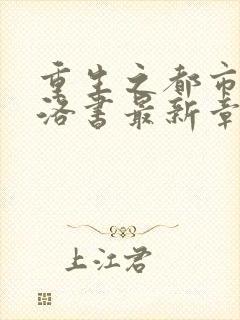 重生之都市
洛书最新章
上江君